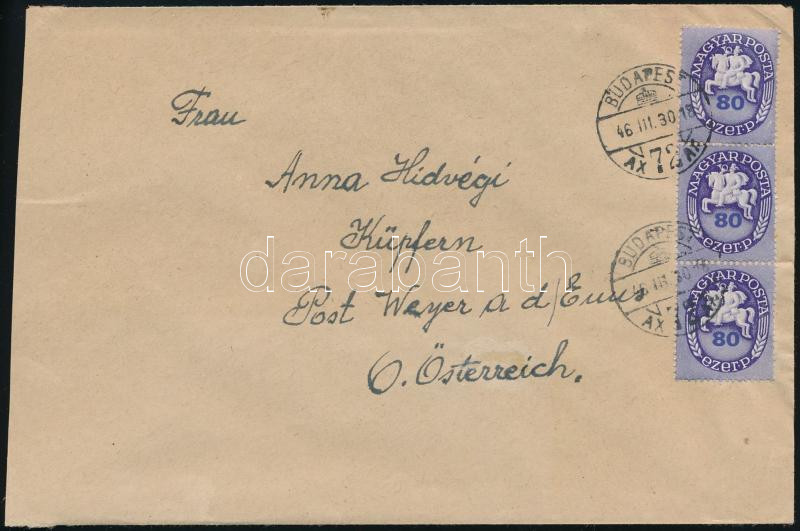 MAGYAR POSTA
80
ezer p.
BUDAPEST
46 III. 30. 18
AX 72 AB
Frau
MAGYAR POSTA
80
ezer p.
Anna Hidvégi
Küpfern
darabanth
BUDAPEST
46 III. 30
AX
MAGYAR POSTA
80
ezer p.
Post Weyer a d/Enns
O. Österreich.